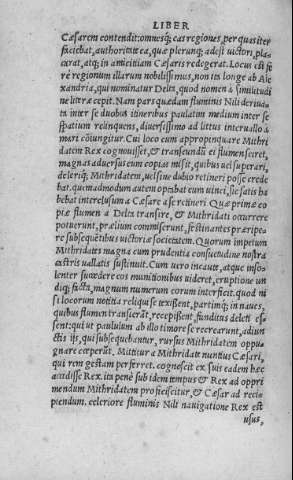 LIBER
Cæsarem contendit: omnesq; eas regiones, per quas iter
faciebat, authoritate ea, quæ plerunq; adest victori, pla-
carat, atq; in amicitiam Cæsaris redegerat. Locus est fe
rè regionum illarum nobilissimus, non ita longe ab Ale
xandria, qui nominatur Delta, quod nomen à similitudi
ne literæ cepit. Nam pars quædam fluminis Nili deriua-
ta inter se duobus itineribus paulatim medium inter se
spatium relinquens, diuersissimo ad littus interuallo à
mari coniungitur. Cui loco cum appropinquare Mithri
datem Rex cognouisset, & transeundum ei flumen sciret,
magnas aduersus eum copias misit, quibus uel superari,
deleriq; Mithridatem, uel sine dubio retineri posse crede
bat. quemadmodum autem optabat eum uinci, sic satis ha
bebat interclusum à Cæsare à se retineri Quæ primæ co
piæ flumen à Delta transire, & Mithridati occurrere
potuerunt, prælium commiserunt, festinantes præripe-
re subsequētibus uictoriæ societatem. Quorum impetum
Mithridates magna cum prudentia consuetudine nostra
castris uallatis sustinuit. Cum uero incaute, atque inso-
lenter succedere eos munitionibus uideret, eruptione un
diq; facta, magnum numerum eorum interficit. quod ni
si locorum notitia reliqui se texissent, partimq; in naues,
quibus flumen transierāt, recepissent, funditus deleti es-
sent: qui ut paululum ab illo timore se recrearunt, adiun
ctis ijs, qui subsequebantur, rursus Mithridatem oppu-
gnare cœperūt. Mittitur à Mithridate nuntius Cæsari,
qui rem gestam perferret. cognoscit ex suis eadem hæc
accidisse Rex. ita penè sub idem tempus & Rex ad oppri
mendum Mithridatem proficiscitur, & Cæsar ad reci-
piendum. celeriore fluminis Nili nauigatione Rex est
usus,